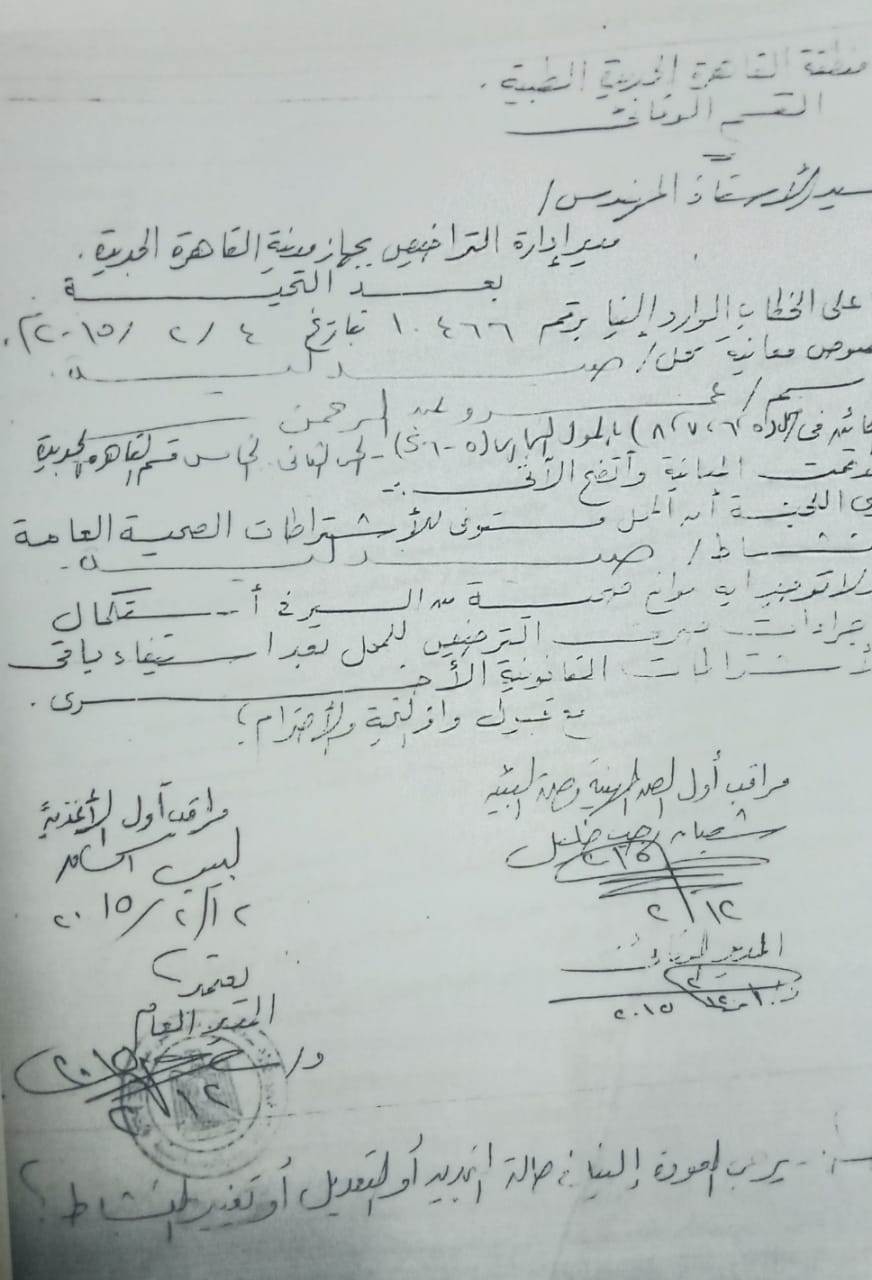 منطقة القاهرة الجديدة الطبية .
القسم الوقائى
السيد الأستاذ المهندس /
مدير إدارة التراخيص بجهاز مدينة القاهرة الجديدة .
بعد التحية
على الخطاب الوارد إلينا برقم ١٠٤٦٦ بتاريخ ٤ / ٢ / ٢٠١٥م .
بخصوص معاينة محل / صيدلية
بإسم / عمرو عبد الرحمن
الكائن فى ( ٨،٧،٦ ) بالمول التجارى - الحى الثانى الخامس قسم القاهرة الجديدة
تمت المعاينة وأتضح الآتى :-
ترى اللجنة أن المحل مستوفى للأشتراطات الصحية العامة
لنشاط / صيدلية .
ولا توجد أية موانع صحية من السير فى أستكمال
إجراءات صرف الترخيص للمحل بعد استيفاء باقى
الأشتراطات القانونية الأخرى .
مع قبول وافر التحية والأحترام ؛
مراقب أول الصحة المهنية وصحة البيئة
شعبان رجب خليل
٢/١٢
مراقب أول الأغذية
لبيب
٢٠١٥/٢/١٢
المدير الوقائى
٢٠١٥
يعتمد
المدير العام
د/
٢٠١٥
١٢
يرجى العودة إلينا فى حالة التجديد أو التعديل أو تغيير النشاط ؟